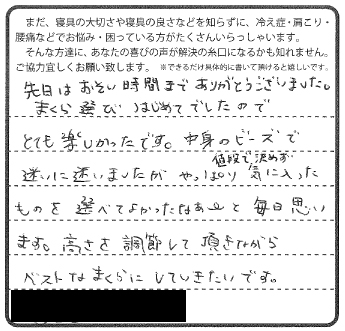 まだ、寝具の大切さや寝具の良さなどを知らずに、冷え症・肩こり・
腰痛などでお悩み・困っている方がたくさんいらっしゃいます。
そんな方達に、あなたの喜びの声が解決の糸口になるかも知れません。
ご協力宜しくお願い致します。 ※できるだけ具体的に書いて頂けると嬉しいです。
先日はおそい時間までありがとうございました。
まくら選びはじめてでしたので
とても楽しかったです。中身のビーズで
値段で決めず
迷いに迷いましたが やっぱり 気に入った
ものを選べてよかったなあーと毎日思い
ます。高さを調節して頂きながら
ベストなまくらにしていきたいです。